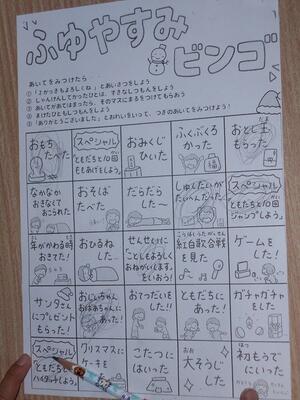 ふゆやすみ
ビンゴ
あいてをみつけたら…
①「3がっきもよろしくね」とあいさつをしよう
②じゃんけんしてかったひとは、すきなしつもんをしよう
③あいてがあてはまったら、そのマスにまるをつけてもらおう
④まけたひともしつもんをしよう
⑤「ありがとうございました」とおれいをいって、つぎのあいてをみつけよう！
おもち
たべた
スペシャル
ともだちと10回
ももあげをしよう。
おみくじ
ひいた
ふくぶくろ
かった
おとし玉
もらった
なかなか
おきなくて
おこられた
おそば
たべた
だらだら
した～
しゅくだいが
たいへんだった…
スペシャル
ともだちと10回
ジャンプしよう。
年がかわる時
おきてた！
おひるね
した…
せんせいに
「ことしもよろしく
おねがいします。」
をいおう！
紅白歌合戦
を見た
ゲームを
した！
サンタさん
にプレゼント
もらった！
おじいちゃん
おばあちゃんに
あった！
おてつだい
をした！！
ともだちに
あった！
ガチャガチャ
をした！
スペシャル
ともだちと
ハイタッチしよう。
クリスマスに
ケーキを
たべた
こたつに
はいった
おお
大そうじ
した
はつ
初もうでに
いった